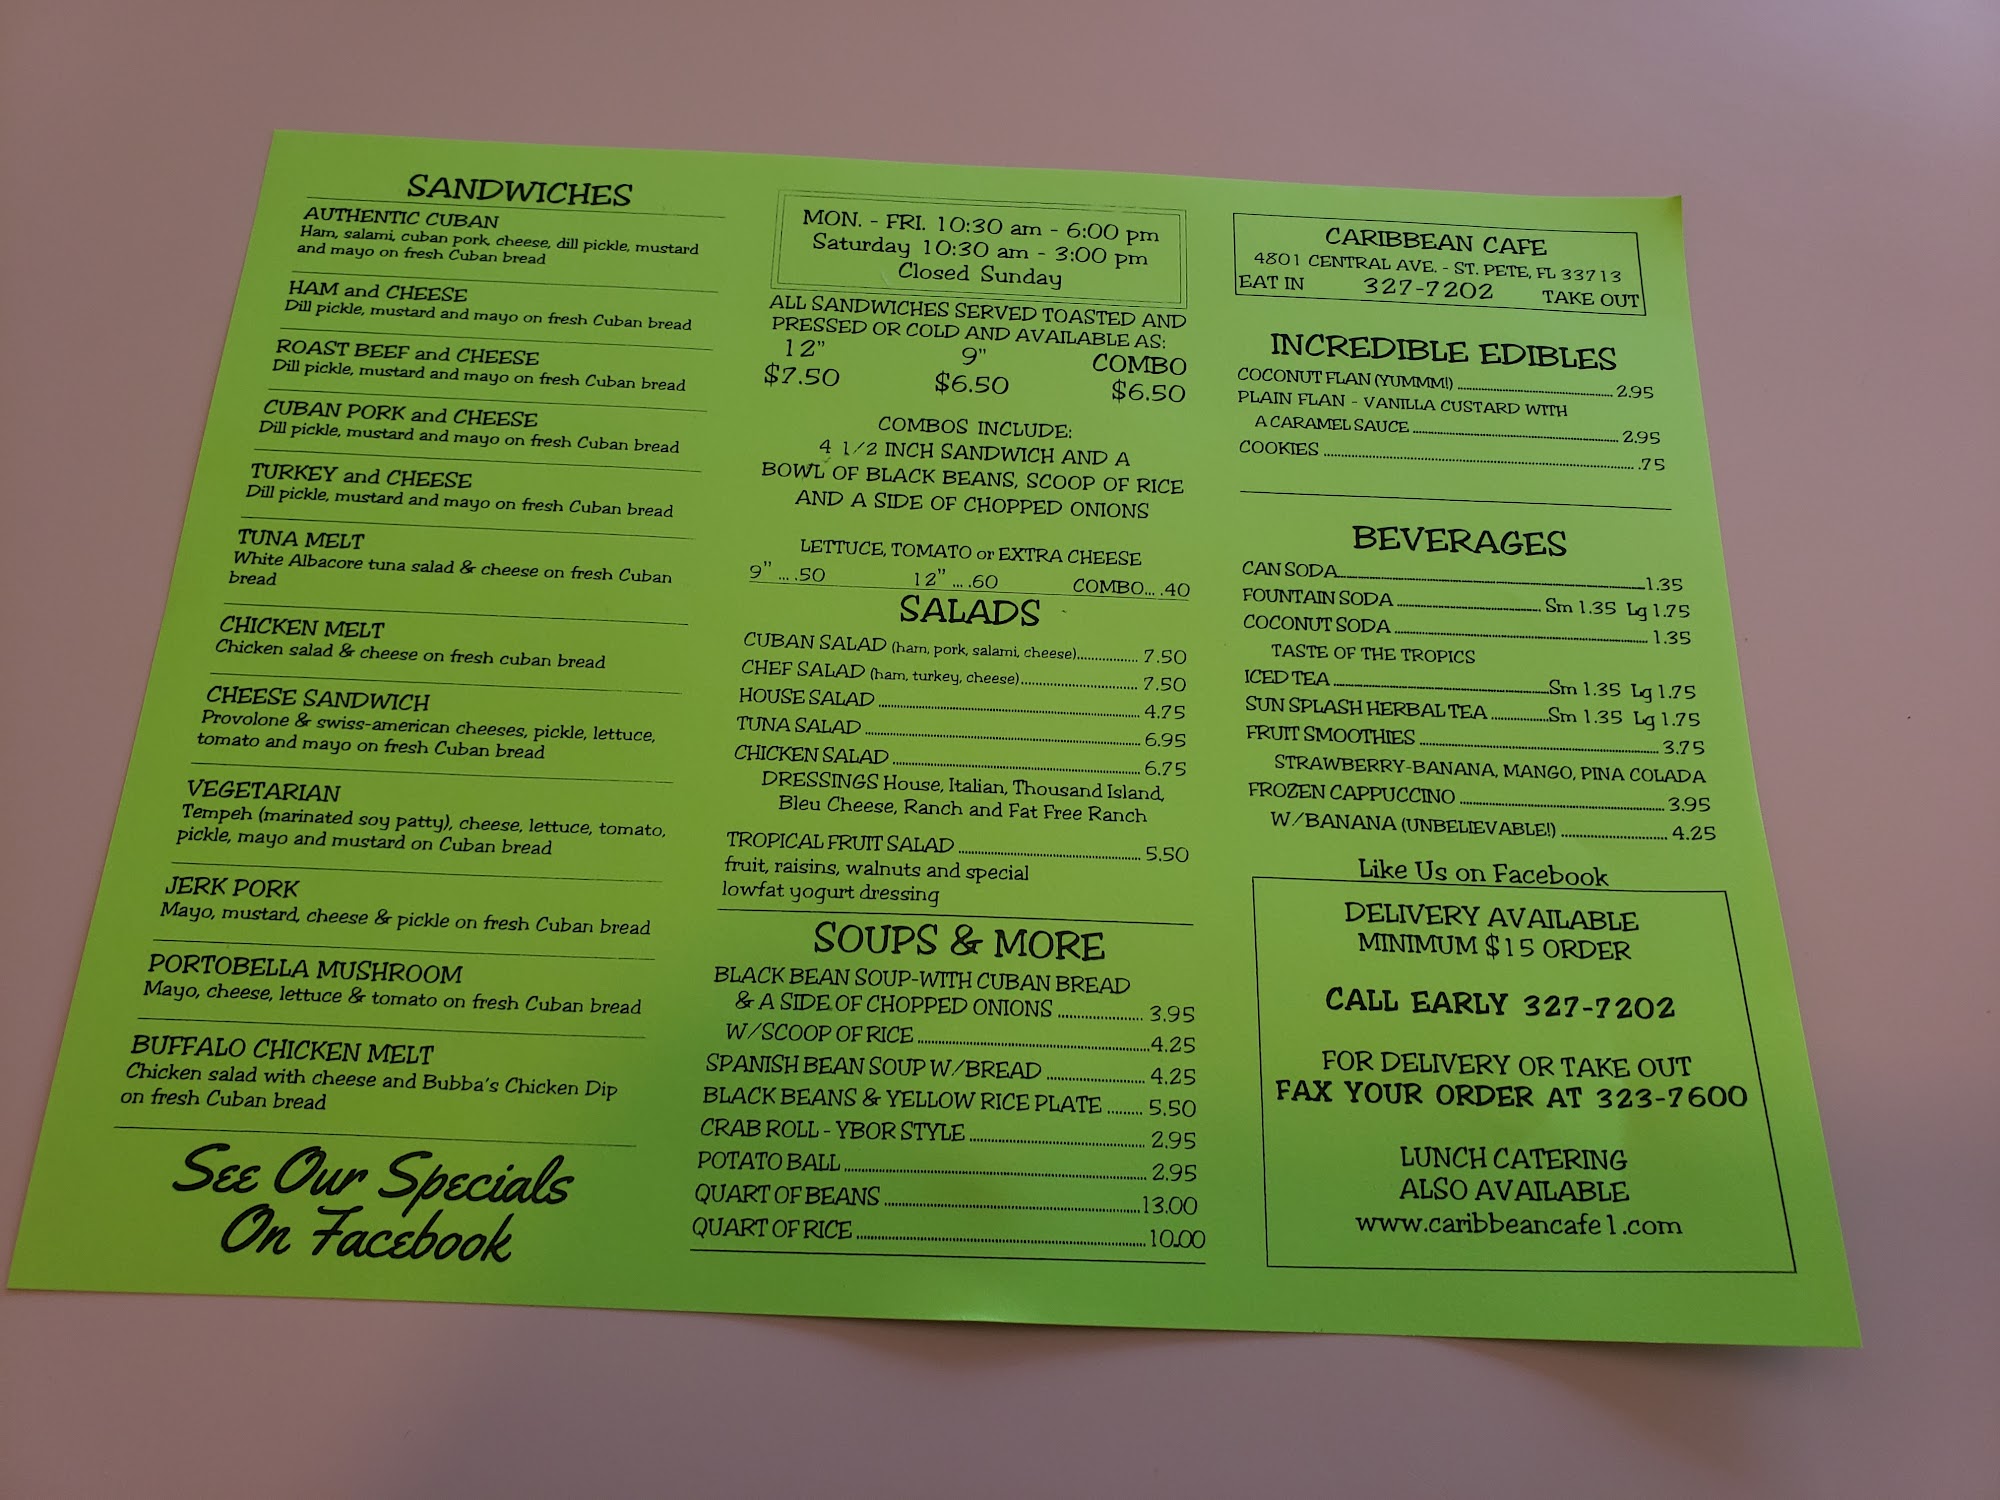 SANDWICHES
AUTHENTIC CUBAN
Ham, salami, cuban pork, cheese, dill pickle, mustard
and mayo on fresh Cuban bread
HAM and CHEESE
Dill pickle, mustard and mayo on fresh Cuban bread
ROAST BEEF and CHEESE
Dill pickle, mustard and mayo on fresh Cuban bread
CUBAN PORK and CHEESE
Dill pickle, mustard and mayo on fresh Cuban bread
TURKEY and CHEESE
Dill pickle, mustard and mayo on fresh Cuban bread
TUNA MELT
White Albacore tuna salad & cheese on fresh Cuban
bread
CHICKEN MELT
Chicken salad & cheese on fresh cuban bread
CHEESE SANDWICH
Provolone & swiss-american cheeses, pickle, lettuce,
tomato and mayo on fresh Cuban bread
VEGETARIAN
Tempeh (marinated soy patty), cheese, lettuce, tomato,
pickle, mayo and mustard on Cuban bread
JERK PORK
Mayo, mustard, cheese & pickle on fresh Cuban bread
PORTOBELLA MUSHROOM
Mayo, cheese, lettuce & tomato on fresh Cuban bread
BUFFALO CHICKEN MELT
Chicken salad with cheese and Bubba's Chicken Dip
on fresh Cuban bread
See Our Specials
On Facebook
MON. - FRI. 10:30 am - 6:00 pm
Saturday 10:30 am - 3:00 pm
Closed Sunday
ALL SANDWICHES SERVED TOASTED AND
PRESSED OR COLD AND AVAILABLE AS:
12" 9" COMBO
$7.50 $6.50 $6.50
COMBOS INCLUDE:
4 1/2 INCH SANDWICH AND A
BOWL OF BLACK BEANS, SCOOP OF RICE
AND A SIDE OF CHOPPED ONIONS
LETTUCE, TOMATO or EXTRA CHEESE
9" ... .50 12" ... .60 COMBO... .40
SALADS
CUBAN SALAD (ham, pork, salami, cheese)................ 7.50
CHEF SALAD (ham, turkey, cheese)................ 7.50
HOUSE SALAD ................ 4.75
TUNA SALAD ................ 6.95
CHICKEN SALAD ................ 6.75
DRESSINGS House, Italian, Thousand Island,
Bleu Cheese, Ranch and Fat Free Ranch
TROPICAL FRUIT SALAD ................ 5.50
fruit, raisins, walnuts and special
lowfat yogurt dressing
SOUPS & MORE
BLACK BEAN SOUP-WITH CUBAN BREAD
& A SIDE OF CHOPPED ONIONS ................ 3.95
W/SCOOP OF RICE ................ 4.25
SPANISH BEAN SOUP W/BREAD ................ 4.25
BLACK BEANS & YELLOW RICE PLATE ......... 5.50
CRAB ROLL - YBOR STYLE ................ 2.95
POTATO BALL ................ 2.95
QUART OF BEANS ................ 13.00
QUART OF RICE ................ 10.00
CARIBBEAN CAFE
4801 CENTRAL AVE. - ST. PETE, FL 33713
EAT IN 327-7202 TAKE OUT
INCREDIBLE EDIBLES
COCONUT FLAN (YUMMM!) ................ 2.95
PLAIN FLAN - VANILLA CUSTARD WITH
A CARAMEL SAUCE ................ 2.95
COOKIES ................ .75
BEVERAGES
CAN SODA................ 1.35
FOUNTAIN SODA ................ Sm 1.35 Lg 1.75
COCONUT SODA ................ 1.35
TASTE OF THE TROPICS
ICED TEA ................ Sm 1.35 Lg 1.75
SUN SPLASH HERBAL TEA ................ Sm 1.35 Lg 1.75
FRUIT SMOOTHIES ................ 3.75
STRAWBERRY-BANANA, MANGO, PINA COLADA
FROZEN CAPPUCCINO ................ 3.95
W/BANANA (UNBELIEVABLE!) ................ 4.25
Like Us on Facebook
DELIVERY AVAILABLE
MINIMUM $15 ORDER
CALL EARLY 327-7202
FOR DELIVERY OR TAKE OUT
FAX YOUR ORDER AT 323-7600
LUNCH CATERING
ALSO AVAILABLE
www.caribbeancafe1.com